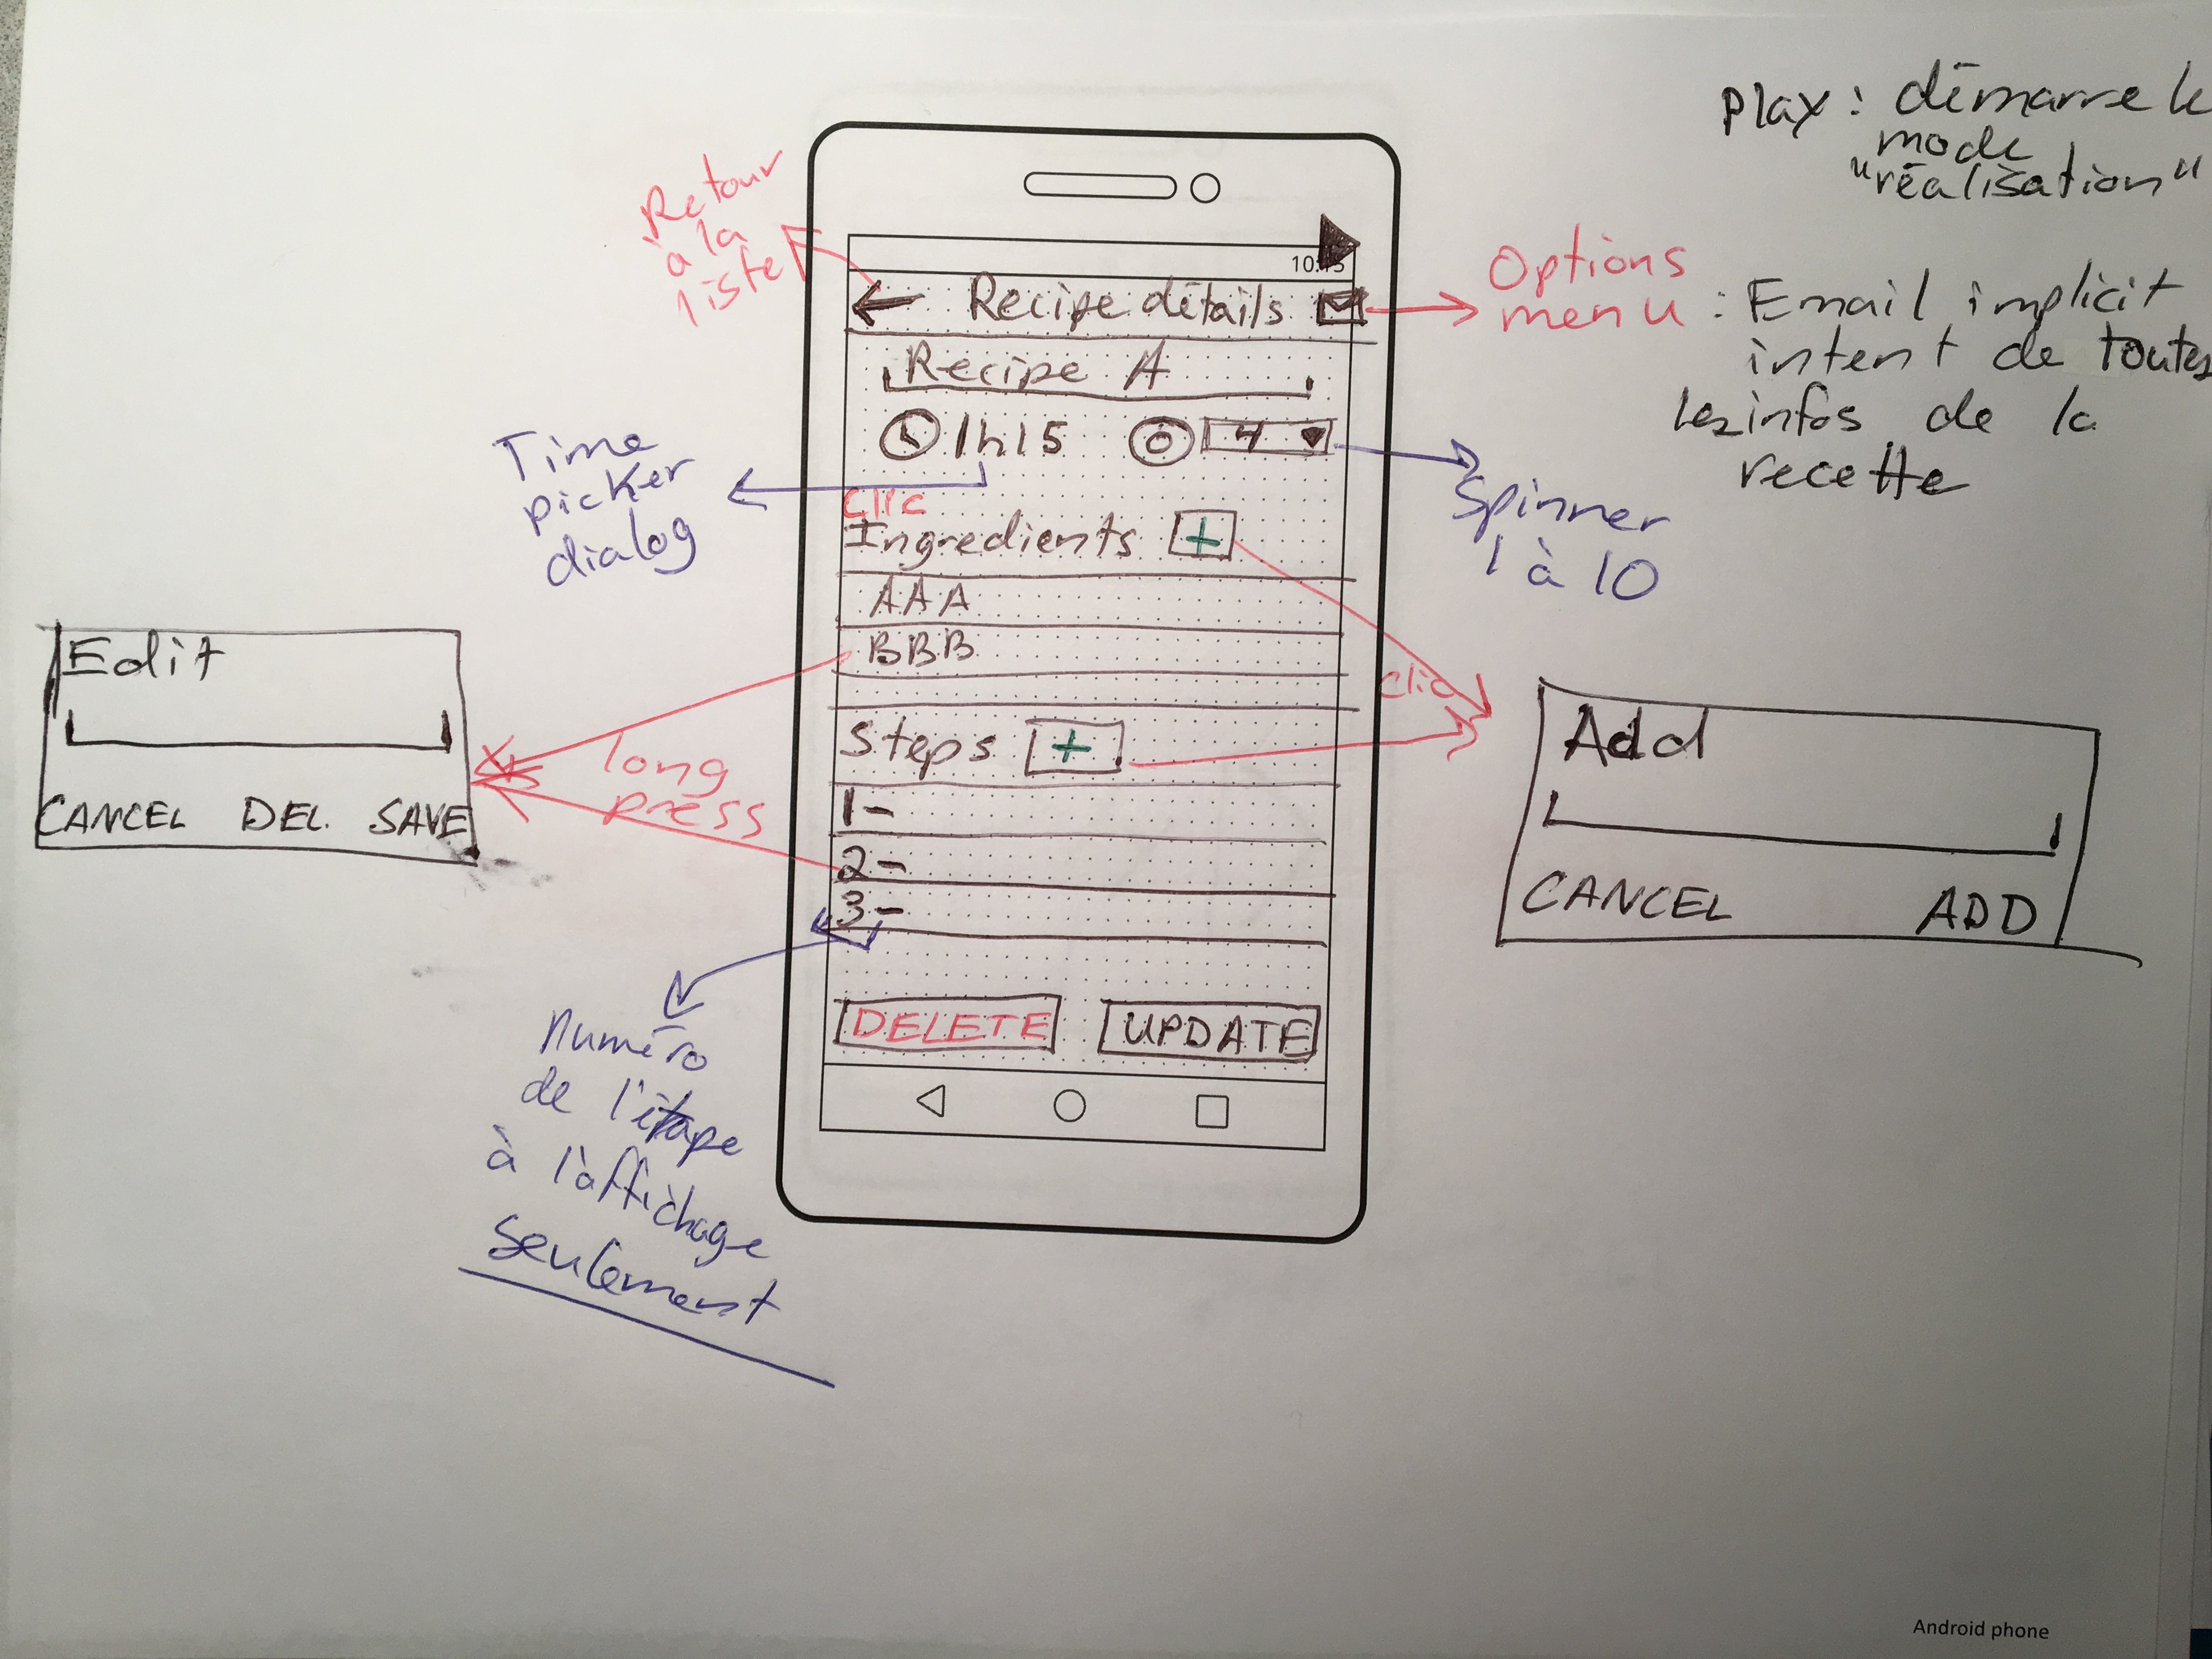 Play : démarre le
mode
"réalisation"
Retour
à la
liste
10:15
Recipe détails
Options
menu
: Email implicit
intent de toutes
les infos de la
recette
Recipe A
1h15
4
Time
picker
dialog
Clic
Spinner
1 à 10
Ingredients +
AAA
BBB
Edit
CANCEL DEL. SAVE
long
press
clic
Steps +
1-
2-
3-
Add
CANCEL ADD
DELETE UPDATE
numéro
de l'étape
à l'affichage
seulement
Android phone